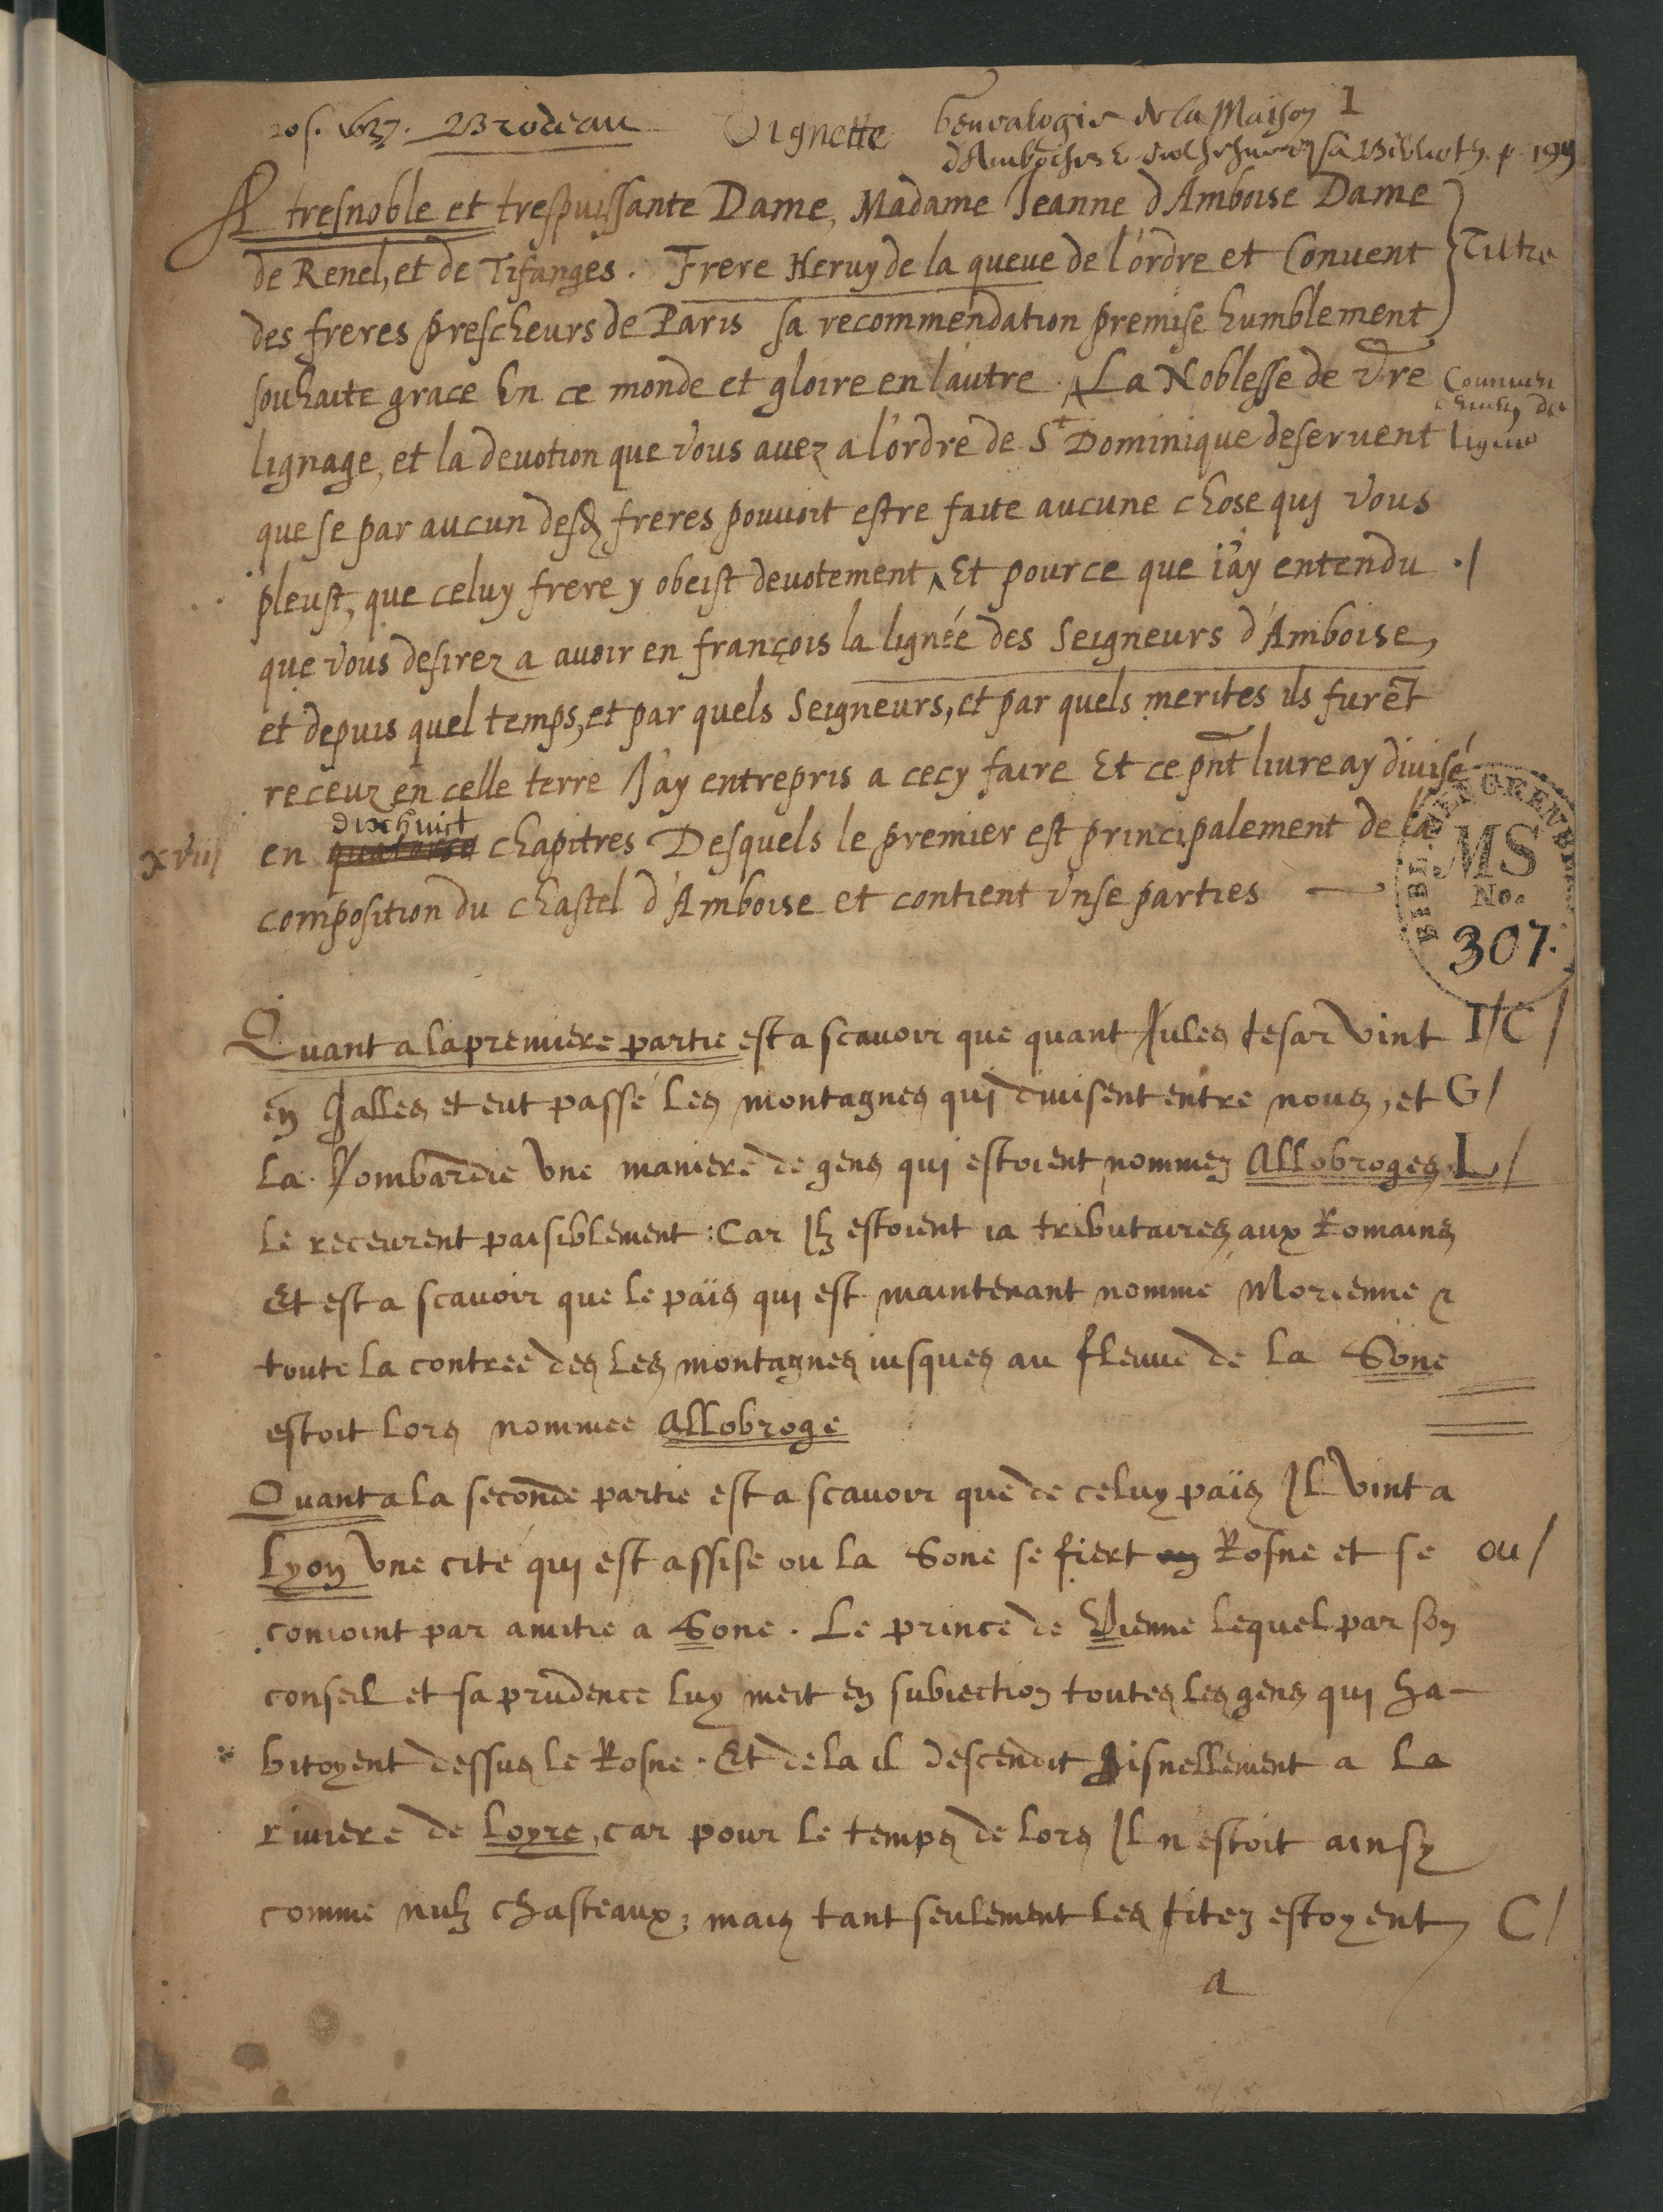 20s. 1627. Brodeau Vignette Genealogie de la Maison 1
d'Amboise sa Biblioth. p. 199
A tresnoble et trespuissante Dame, Madame Jeanne d'Amboise Dame
de Renel, et de Tifanges. Frere Heruy de la queue de l'ordre et Conuent Titre
des freres prescheurs de Paris sa recommendation premise humblement
souhaite grace En ce monde et gloire en lautre. La Noblesse de vre
lignage, et la deuotion que vous auez a l'ordre de St Dominique deseruent ligne
que se par aucun desd freres pouuoit estre faite aucune chose quj vous
pleust, que celuy frere y obeist deuotement, Et pource que i'ay entendu ./
que vous desirez a auoir en françois la lignée des Seigneurs d'Amboise,
et depuis quel temps, et par quels Seigneurs, et par quels merites ils furẽt
receuz en celle terre J'ay entrepris a cecy faire Et ce pñt liure ay diuisé
dixhuict
xviij en quatorse chapitres Desquels le premier est principalement de la
composition du chastel d'Amboise et contient vnse parties
BIBL.
MS
No.
307.
Quant a la premiere partie est a scauoir que quant Jules cesar vint I/C/
en Galles et eut passé les montagnes quj diuisent entre nous, et G/
la Lombardie vne maniere de gens quj estoient nommez Allobroges L/
le receurent paisiblement : Car Ilz estoient ia tributaires aux Romains
Et est a scauoir que le païs quj est maintenant nommé Morienne &
toute la contree des les montagnes iusques au fleuue de la Sone
estoit lors nommee Allobroge
Quant a la seconde partie est a scauoir que de celuy païs Il vint a
Lyon vne cité quj est assise ou la Sone se fiert en Rosne et se ou/
conioint par amitie a Sone. Le prince de Vienne lequel par son
conseil et sa prudence luy meit en subiection toutes les gens quj ha-
bitoyent dessus le Rosne. Et de la il descendit hisnellement a la
riuiere de Loyre, car pour le temps de lors Il n'estoit ainsy
comme nulz chasteaux, mais tant seulement les citez estoyent C/
a